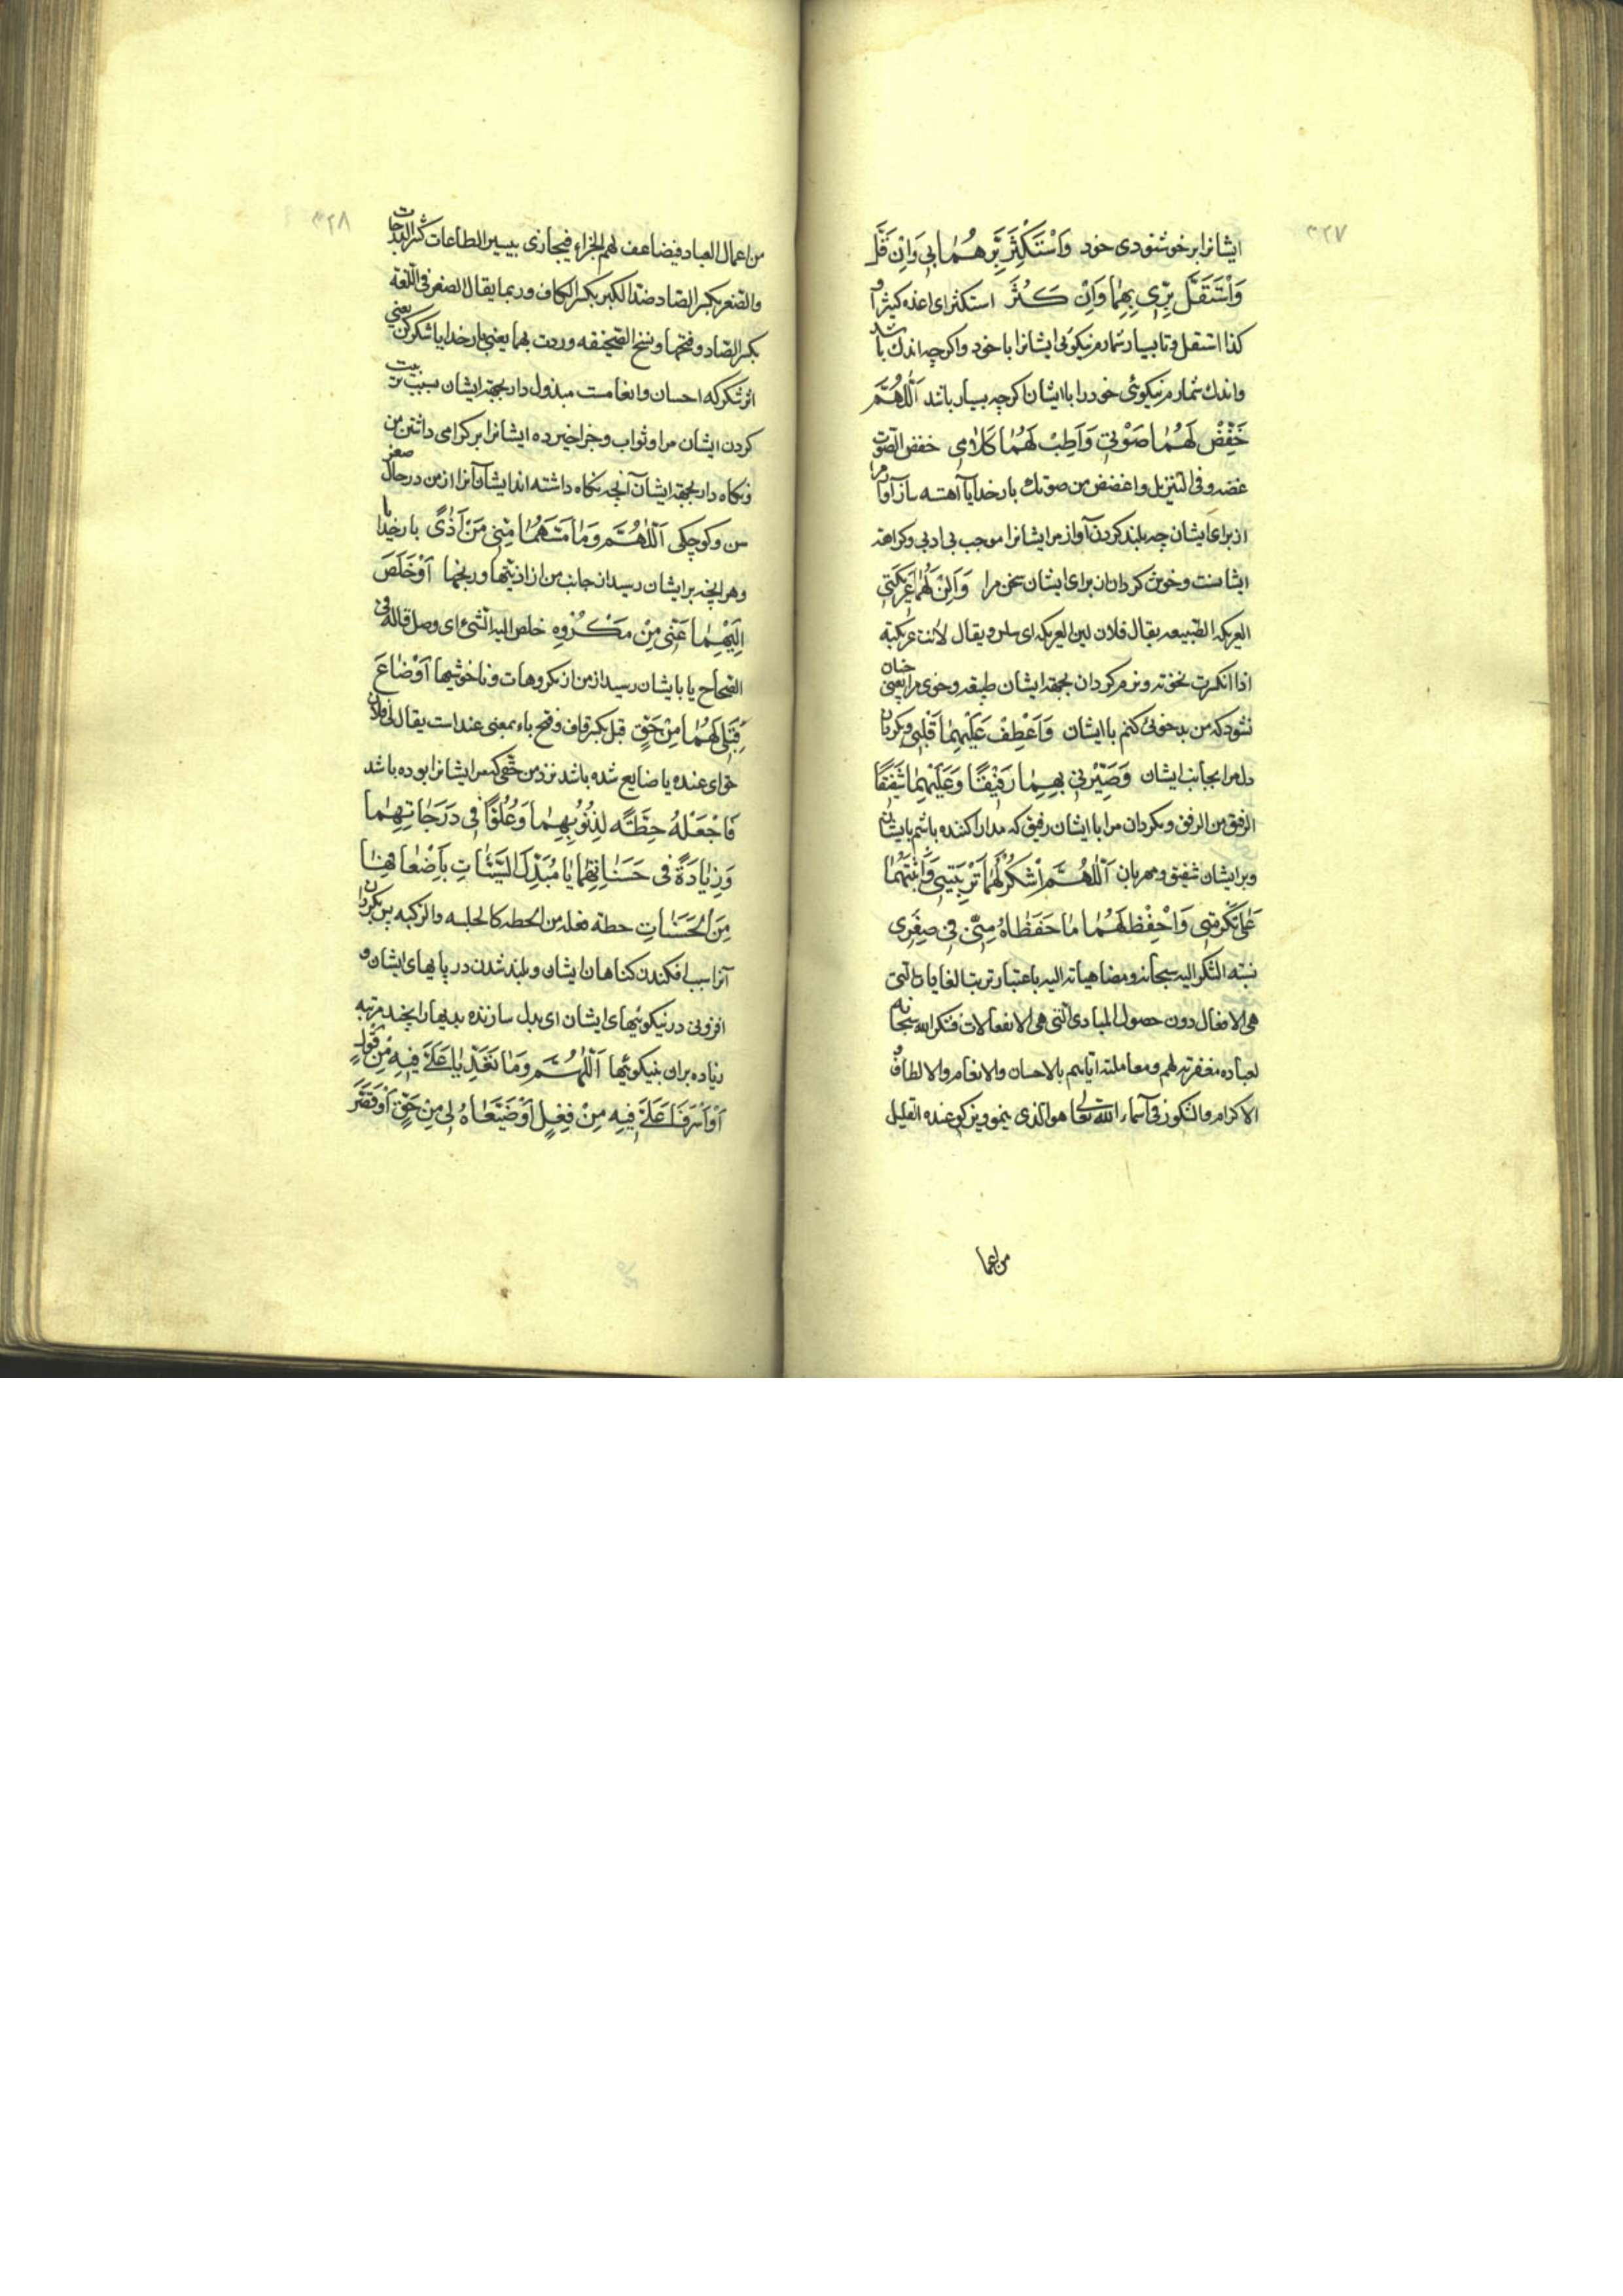 ٣٢٧
ایشانرا بر خوشنودی خود وَاَسْتَكْثِرَ بِرَّهُمٰا بي وَاِنْ قَلَّ
وَاَسْتَقِلَّ بِرّٖي بِهِمٰا وَاِنْ كَثُرَ استکثر ای اعده کثیرا و
کذا استقل و تا بسیار شمارم نیکوئی ایشانرا با خود و اگرچه اندك باشد
و اندك شمارم نیکوئی خود را با ایشان اگرچه بسیار باشد اَللّٰهُمَّ
خَفِّضْ لَهُمٰا صَوْتي وَاَطِبْ لَهُمٰا كَلٰامي خفض الصوت
غضه و فی التنزیل واغضض من صوتك بار خدایا آهسته ساز آواز مرا
از برای ایشان چه بلند کردن آواز مر ایشانرا موجب بی ادبی و کراهة
ایشانست و خوش گردان از برای ایشان سخن مرا وَاَلِنْ لَهُمٰا عَرٖيكَتي
العریکه الطبیعه یقال فلان لین العریکه ای سلس و یقال لانت عریکته
اذا انکسرت نخوته و نرم گردان بجهة ایشان طبیعه و خوی مرا یعنی چنان
نشود که من بدخوئی کنم با ایشان وَاَعْطِفْ عَلَيْهِمٰا قَلْبي و بگردان
دل مرا بجانب ایشان وَصَيِّرْني بِهِمٰا رَفٖيقًا وَعَلَيْهِمٰا شَفٖيقًا
الرفیق من الرفق و بگردان مرا با ایشان رفیق که مدارا کننده باشم بایشان
و بر ایشان شفیق و مهربان اَللّٰهُمَّ اشْكُرْ لَهُمٰا تَرْبِيَتي وَاَثِبْهُمٰا
عَلٰى تَكْرِمَتي وَاحْفَظْ لَهُمٰا مٰا حَفِظٰاهُ مِنّي في صِغَري
نسبة الشکر الیه سبحانه و مضاهیاته الیه باعتبار ترتب الغایات التی
هی الافعال دون حصول المبادی التی هی الانفعالات فشکر الله سبحانه
لعباده مغفرته لهم و معاملته ایاهم بالاحسان والانعام والالطاف و
الاکرام والشکور فی اسماء الله تعالی هو الذی ینمو و یزکو عنده القلیل
من اعما
٣٢٨
من اعمال العباد فیضاعف لهم الجزاء فیجازی بیسیر الطاعات کثیر الدرجات
والصغر بکسر الصاد ضد الکبر بکسر الکاف و ربما یقال الصغر فی اللغة
بکسر الصاد و فتحها و نسخ الصحیفه وردت بهما یعنی بار خدایا شکر کن یعنی
اثر شکر که احسان و انعامست مبذول دار بجهة ایشان بسبب تربیت
کردن ایشان مرا و ثواب و جزا خیر ده ایشانرا بر گرامی داشتن من
و نگاه دار بجهة ایشان آنچه نگاه داشته اند ایشان آنرا از من در حال صغر
سن و کوچکی اَللّٰهُمَّ وَمٰا مَسَّهُمٰا مِنّي مِنْ اَذًى بار خدایا
و هر آنچه برایشان رسید از جانب من از اذیتها و رنجها اَوْ خَلَصَ
اِلَيْهِمٰا عَنّي مِنْ مَكْرُوهٍ خلص الیه الشیء ای وصل قاله فی
الصحاح یا بایشان رسید از من از مکروهات و ناخوشیها اَوْ ضٰاعَ
قِبَلي لَهُمٰا مِنْ حَقٍّ قبل بکسر قاف و فتح باء بمعنی عند است یقال لی قبل فلان
حق ای عنده یا ضایع شده باشد نزد من حقی که مر ایشانرا بوده باشد
فَاجْعَلْهُ حِطَّةً لِذُنُوبِهِمٰا وَعُلُوًّا في دَرَجٰاتِهِمٰا
وَزِيٰادَةً في حَسَنٰاتِهِمٰا يٰا مُبَدِّلَ السَّيِّئٰاتِ بِاَضْعٰافِهٰا
مِنَ الْحَسَنٰاتِ حطة فعله من الحطه کالجلسه والرکبه پس بگردان
آنرا سبب افکندن گناهان ایشان و بلند شدن در پایهای ایشان و
افزونی در نیکوئیهای ایشان ای بدل سازنده بدیها را بچند مرتبه
زیاده بر آن بنیکوئیها اَللّٰهُمَّ وَمٰا تَعَدَّيٰا عَلَيَّ فيهِ مِنْ قَوْلٍ
اَوْ اَسْرَفٰا عَلَيَّ فيهِ مِنْ فِعْلٍ اَوْ ضَيَّعٰاهُ لي مِنْ حَقٍّ اَوْ قَصَّرٰ